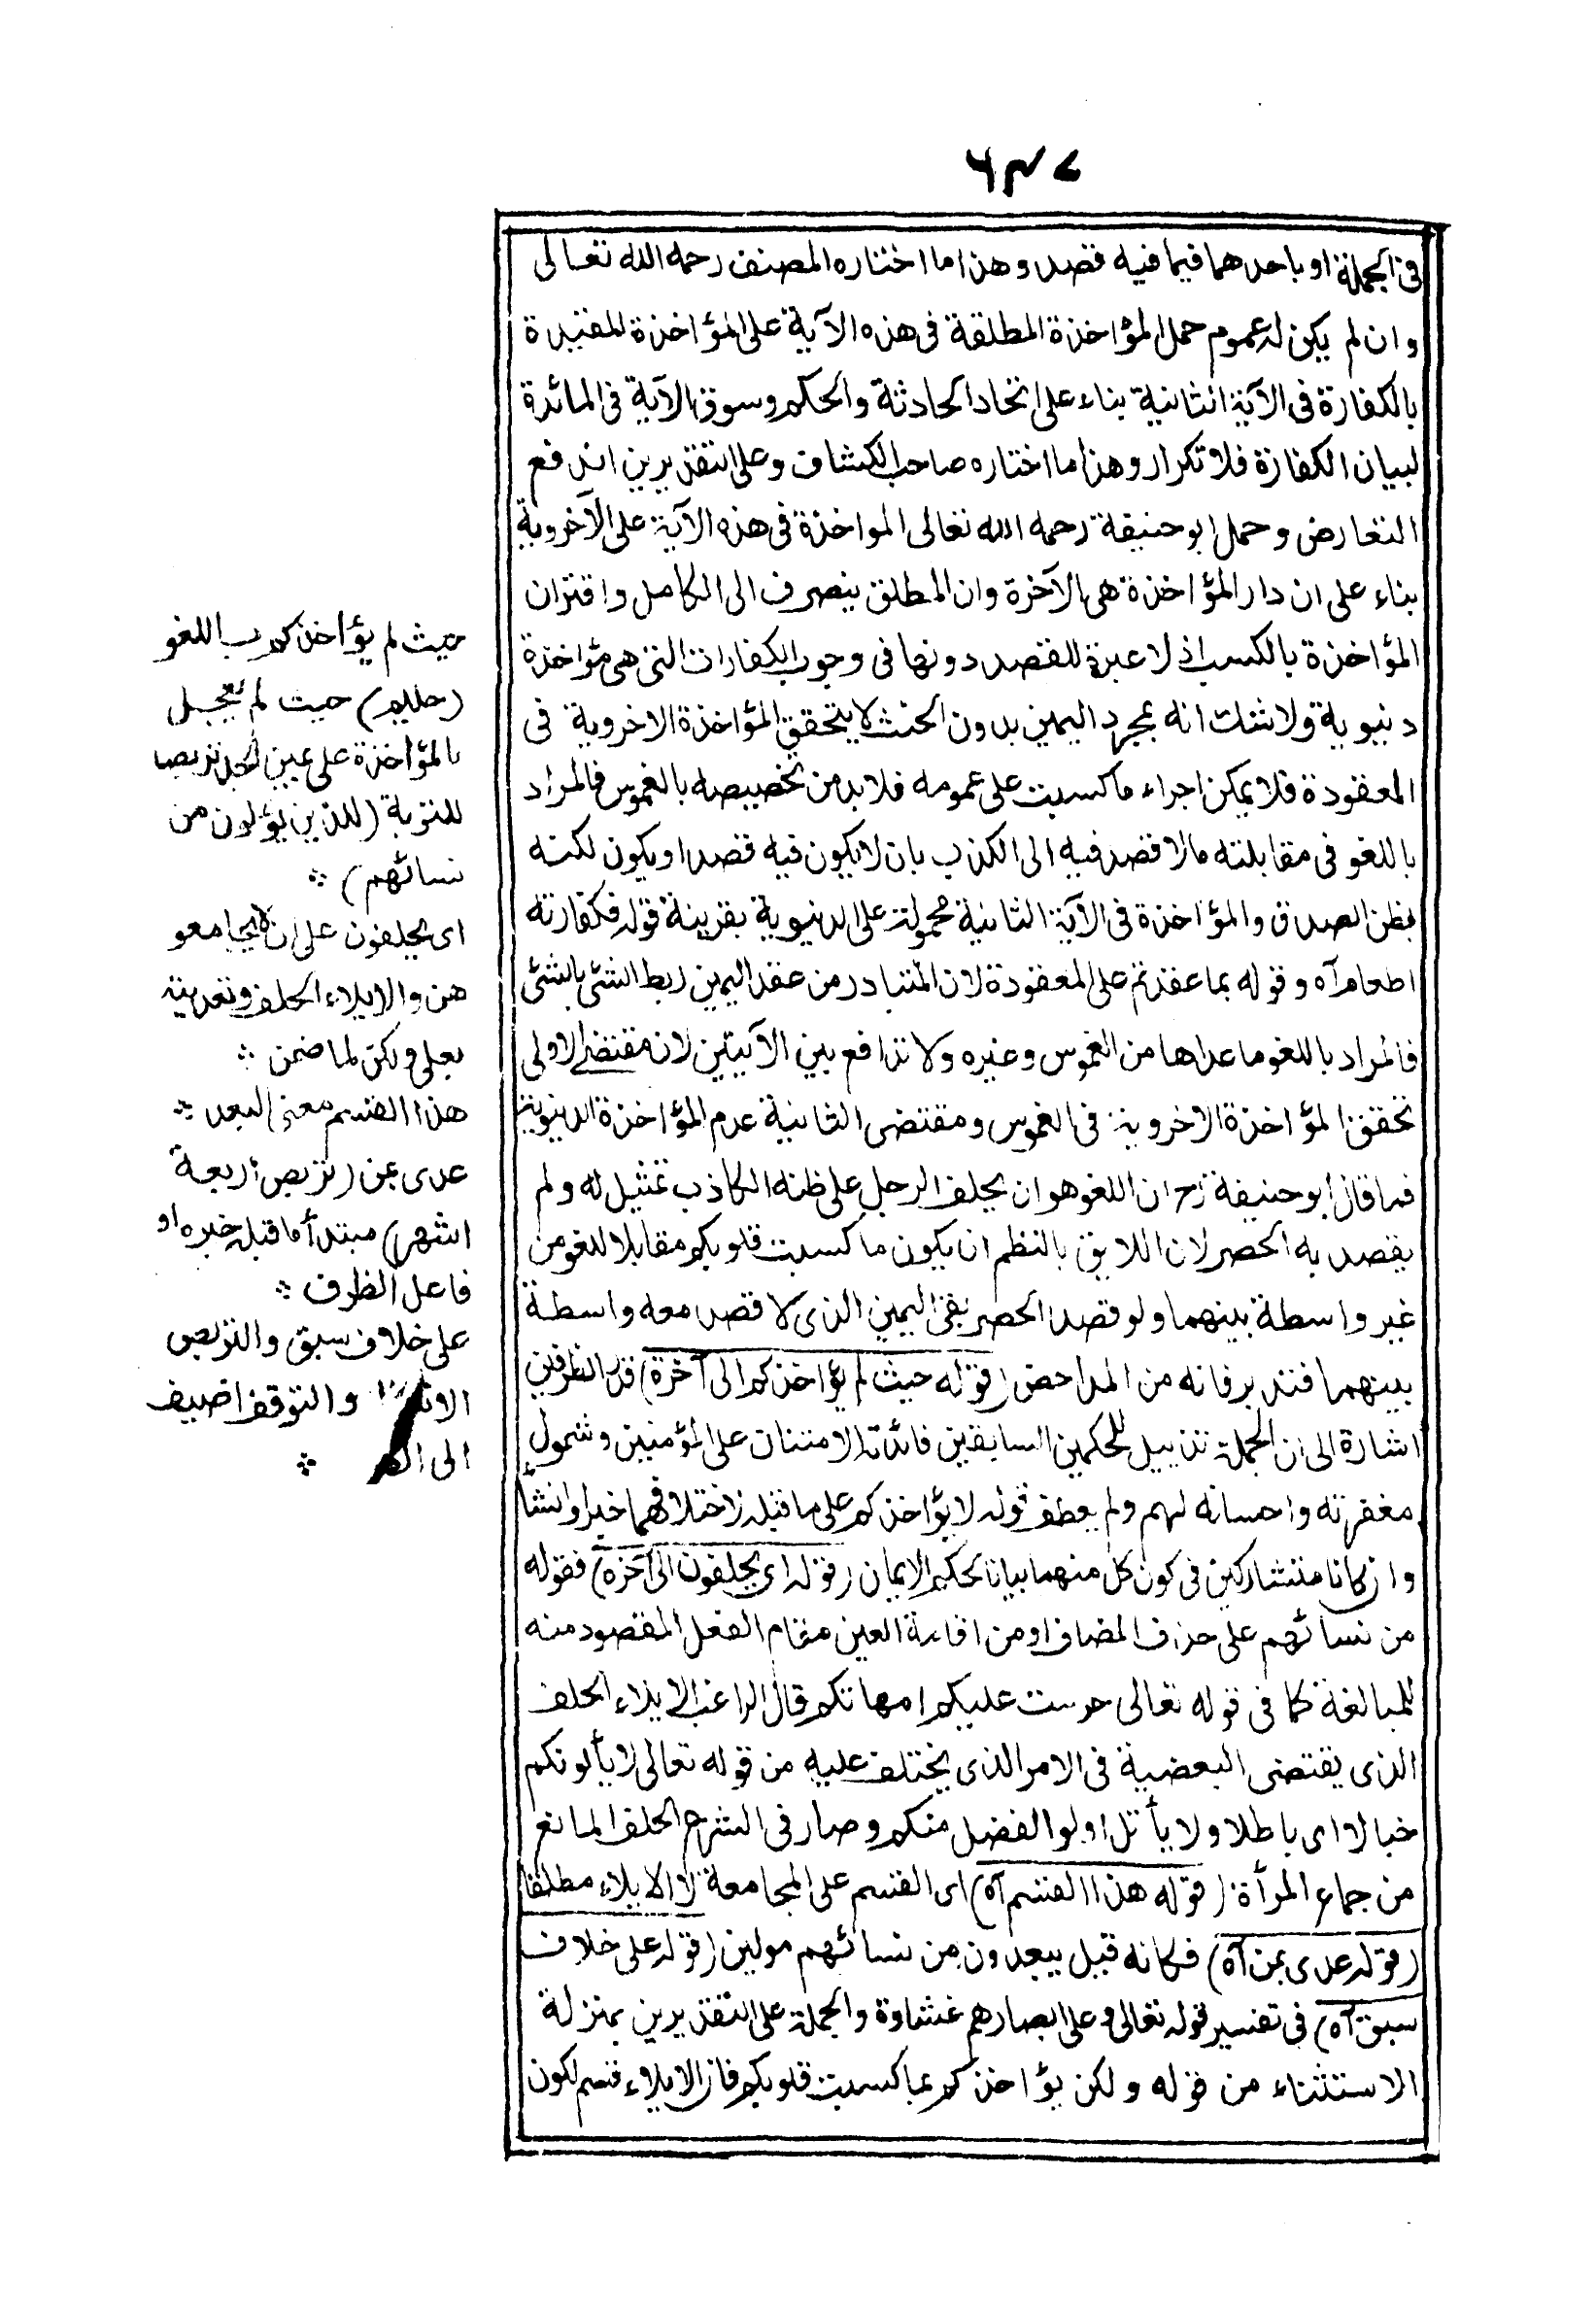 في الجملة او باحدهما فيما فيه قصد وهذا ما اختاره المصنف رحمه الله تعالى
وان لم يكن له عموم حمل المؤاخذة المطلقة في هذه الآية على المؤاخذة المقيدة
بالكفارة في الآية الثانية بناء على اتحاد الحادثة والحكم وسوق الآية في المائدة
لبيان الكفارة فلا تكرار وهذا ما اختاره صاحب الكشاف وعلى التقديرين اندفع
التعارض وحمل ابو حنيفة رحمه الله تعالى المواخذة في هذه الآية على الآخروية
بناء على ان دار المؤاخذة هي الآخرة وان المطلق ينصرف الى الكامل واقتران
المؤاخذة بالكسب اذ لا عبرة للقصد دونها في وجوب الكفارات التي هي مؤاخذة
دنيوية ولا شك انه بمجرد اليمين بدون الحنث لا يتحقق المؤاخذة الاخروية في
المعقودة فلا يمكن اجراء ما كسبت على عمومه فلا بد من تخصيصه بالغموس فالمراد
باللغو في مقابلته ما لا قصد فيه الى الكذب بان لا يكون فيه قصد او يكون لكنه
بظن الصدق والمؤاخذة في الآية الثانية محمولة على الدنيوية بقرينة قوله فكفارته
اطعام آه وقوله بما عقدتم على المعقودة لان المتبادر من عقد اليمين ربط الشئ بالشئ
فالمراد باللغو ما عداها من الغموس وغيره ولا تدافع بين الآيتين لان مقتضى الاولى
تحقق المؤاخذة الاخروية في الغموس ومقتضى الثانية عدم المؤاخذة الدنيوية
فما قال ابو حنيفة رح ان اللغو هو ان يحلف الرجل على ظنه الكاذب تمثيل له ولم
يقصد به الحصر لان اللايق بالنظم ان يكون ما كسبت قلوبكم مقابلا للغو من
غير واسطة بينهما ولو قصد الحصر بقى اليمين الذي لا قصد معه واسطة
بينهما فتدبر فانه من المداحض (قوله حيث لم يؤاخذكم الى آخرة) قدر الظرفين
اشارة الى ان الجملة تذييل للحكمين السابقين فائدته الامتنان على المؤمنين وشمول
مغفرته واحسانه لهم ولم يعطف قوله لا يؤاخذكم على ما قبله لاختلافهما خبرا وانشأ
وان كانا متشاركين في كون كل منهما بيانا لحكم الايمان (قوله اي يحلفون الى آخره) فقوله
من نسائهم على حذف المضاف او من اقامة العين مقام الفعل المقصود منه
للمبالغة كما في قوله تعالى حرمت عليكم امهاتكم قال الراغب الايلاء الحلف
الذي يقتضى البعضية في الامر الذي يختلف عليه من قوله تعالى لا يألونكم
خبالا اي باطلا ولا يأتل اولوا الفضل منكم وصار في الشرع الحلف المانع
من جماع المرأة (قوله هذا القسم آه) اى القسم على المجامعة لا الايلاء مطلقا
(قوله عدى بمن آه) فكانه قيل يبعدون من نسائهم مولين (قوله على خلاف
سبق آه) في تفسير قوله تعالى وعلى ابصارهم غشاوة والجملة على التقديرين بمنزلة
الاستثناء من قوله ولكن يؤاخذكم بما كسبت قلوبكم فان الايلاء قسم لكون
حيث لم يؤاخذكم باللغو
(حليم) حيث لم يعجل
بالمؤاخذة على يمين الجد تربصا
للتوبة (للذين يؤلون من
نسائهم) ∴
اى يحلفون على ان لا يجامعو
هن والايلاء الحلف وتعديته
بعلى ولكن لما ضمن ∴
هذا القسم معنى البعد ∴
عدى بمن (تربص أربعة
اشهر) مبتدأ ما قبله خبره او
فاعل الظرف ∴
على خلاف سبق والتربص
والتوقف اضيف
الى ∴